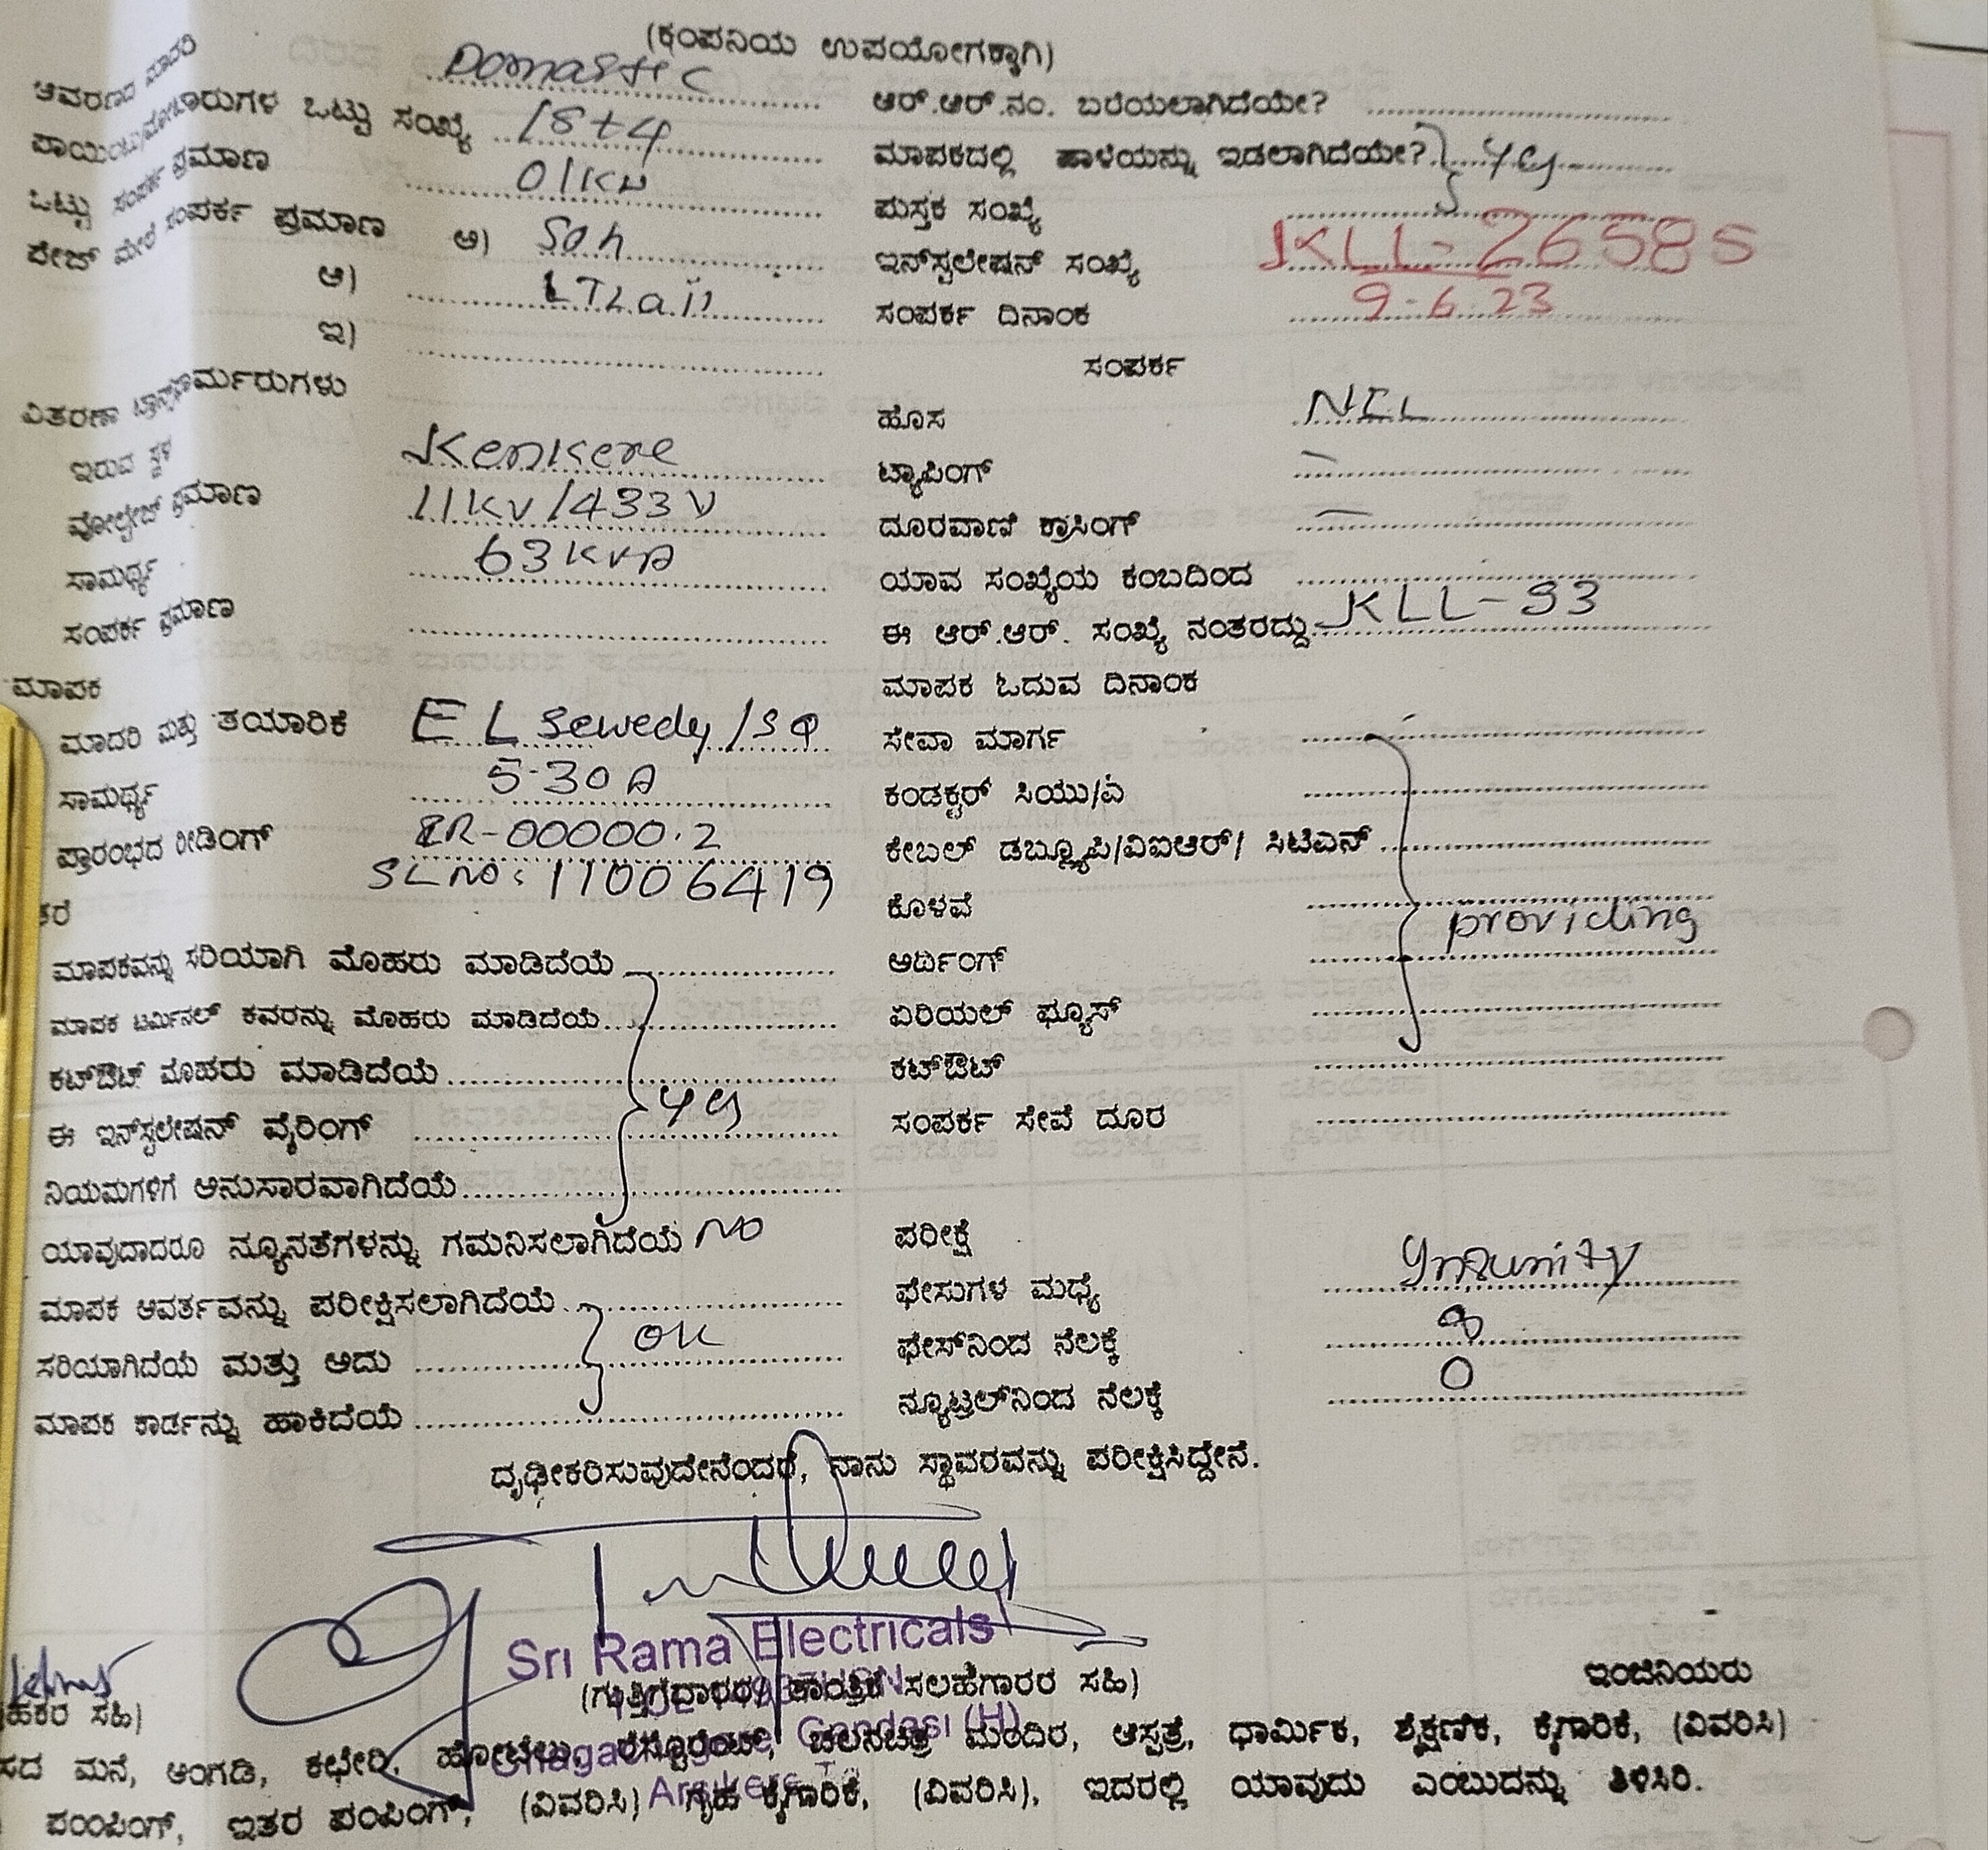 (ಕಂಪನಿಯ ಉಪಯೋಗಕ್ಕಾಗಿ)
ಆವರಣದ ಮಾದರಿ Domastic
ಪಾಯಿಂಟು/ಮೋಟಾರುಗಳ ಒಟ್ಟು ಸಂಖ್ಯೆ 18+4
ಒಟ್ಟು ಸಂಪರ್ಕ ಪ್ರಮಾಣ 01KW
ಫೇಜ್ ಮೇಲೆ ಸಂಪರ್ಕ ಪ್ರಮಾಣ ಅ)
ಆ)
ಇ)
ವಿತರಣಾ ಟ್ರಾನ್ಸ್‌ಫಾರ್ಮರುಗಳು
ಇರುವ ಸ್ಥಳ Kenkere
ವೋಲ್ಟೇಜ್ ಪ್ರಮಾಣ 11KV/433V
ಸಾಮರ್ಥ್ಯ 63KVA
ಸಂಪರ್ಕ ಪ್ರಮಾಣ
ಮಾಪಕ
ಮಾದರಿ ಮತ್ತು ತಯಾರಿಕೆ EL Sewedy/
ಸಾಮರ್ಥ್ಯ 5-30A
ಪ್ರಾರಂಭದ ರೀಡಿಂಗ್ IR-00000.2
SL NO: 11006419
ಮಾಪಕವನ್ನು ಸರಿಯಾಗಿ ಮೊಹರು ಮಾಡಿದೆಯೆ
ಮಾಪಕ ಟರ್ಮಿನಲ್ ಕವರನ್ನು ಮೊಹರು ಮಾಡಿದೆಯೆ
ಕಟ್‌ಔಟ್ ಮೊಹರು ಮಾಡಿದೆಯೆ
ಈ ಇನ್‌ಸ್ಟಲೇಷನ್ ವೈರಿಂಗ್
ನಿಯಮಗಳಿಗೆ ಅನುಸಾರವಾಗಿದೆಯೆ
ಯಾವುದಾದರೂ ನ್ಯೂನತೆಗಳನ್ನು ಗಮನಿಸಲಾಗಿದೆಯೆ NO
ಮಾಪಕ ಆವರ್ತವನ್ನು ಪರೀಕ್ಷಿಸಲಾಗಿದೆಯೆ
ಸರಿಯಾಗಿದೆಯೆ ಮತ್ತು ಅದು OK
ಮಾಪಕ ಕಾರ್ಡನ್ನು ಹಾಕಿದೆಯೆ
ಆರ್.ಆರ್.ನಂ. ಬರೆಯಲಾಗಿದೆಯೇ?
ಮಾಪಕದಲ್ಲಿ ಹಾಳೆಯನ್ನು ಇಡಲಾಗಿದೆಯೇ?
ಪುಸ್ತಕ ಸಂಖ್ಯೆ
ಇನ್‌ಸ್ಟಲೇಷನ್ ಸಂಖ್ಯೆ KLL-26585
ಸಂಪರ್ಕ ದಿನಾಂಕ 9-6-23
ಸಂಪರ್ಕ
ಹೊಸ NIL
ಟ್ಯಾಪಿಂಗ್ —
ದೂರವಾಣಿ ಕ್ರಾಸಿಂಗ್ —
ಯಾವ ಸಂಖ್ಯೆಯ ಕಂಬದಿಂದ
ಈ ಆರ್.ಆರ್. ಸಂಖ್ಯೆ ನಂತರದ್ದು KLL-93
ಮಾಪಕ ಓದುವ ದಿನಾಂಕ
ಸೇವಾ ಮಾರ್ಗ
ಕಂಡಕ್ಟರ್ ಸಿಯು/ಎ
ಕೇಬಲ್ ಡಬ್ಲ್ಯೂಪಿ/ವಿಐಆರ್/ ಸಿಟಿಎಸ್
ಕೊಳವೆ providing
ಅರ್ಥಿಂಗ್
ಏರಿಯಲ್ ಫ್ಯೂಸ್
ಕಟ್‌ಔಟ್
ಸಂಪರ್ಕ ಸೇವೆ ದೂರ
ಪರೀಕ್ಷೆ
ಫೇಸುಗಳ ಮಧ್ಯೆ
ಫೇಸ್‌ನಿಂದ ನೆಲಕ್ಕೆ
ನ್ಯೂಟ್ರಲ್‌ನಿಂದ ನೆಲಕ್ಕೆ 0
ದೃಢೀಕರಿಸುವುದೇನೆಂದರೆ, ನಾನು ಸ್ಥಾವರವನ್ನು ಪರೀಕ್ಷಿಸಿದ್ದೇನೆ.
Sri Rama Electricals
(ಗುತ್ತಿಗೆದಾರರ/ತಾಂತ್ರಿಕ ಸಲಹೆಗಾರರ ಸಹಿ)
ಇಂಜಿನಿಯರು
ಸಹಿ)
Gandasi (H)
ಮನೆ, ಅಂಗಡಿ, ಕಛೇರಿ, ಹೋಟೆಲು, ರೆಸ್ಟೊರೆಂಟ್, ಚಲನಚಿತ್ರ ಮಂದಿರ, ಆಸ್ಪತ್ರೆ, ಧಾರ್ಮಿಕ, ಶೈಕ್ಷಣಿಕ, ಕೈಗಾರಿಕೆ, (ವಿವರಿಸಿ)
ಪಂಪಿಂಗ್, ಇತರ ಪಂಪಿಂಗ್, (ವಿವರಿಸಿ) ಗೃಹ ಕೈಗಾರಿಕೆ, (ವಿವರಿಸಿ), ಇದರಲ್ಲಿ ಯಾವುದು ಎಂಬುದನ್ನು ತಿಳಿಸಿರಿ.